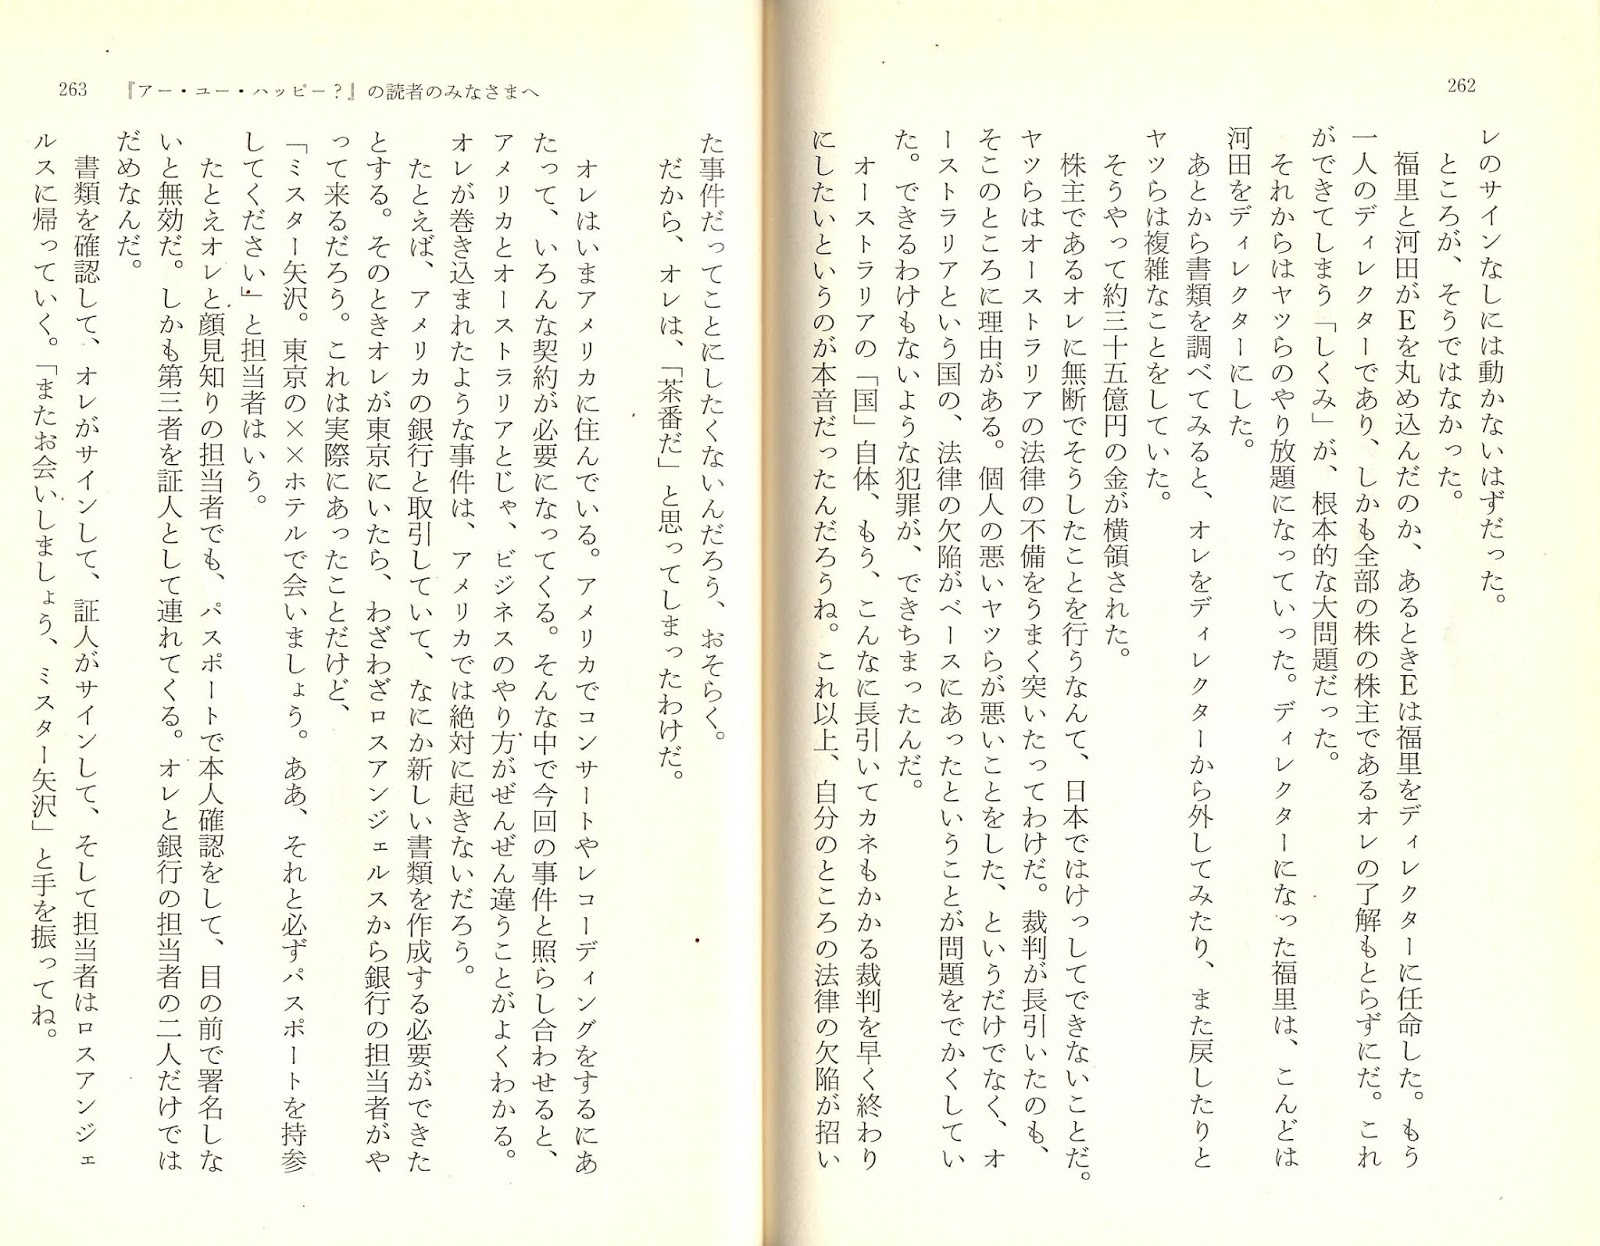 262
レのサインなしには動かないはずだった。
ところが、そうではなかった。
福里と河田がEを丸め込んだのか、あるときEは福里をディレクターに任命した。もう
一人のディレクターであり、しかも全部の株の株主であるオレの了解もとらずにだ。これ
ができてしまう「しくみ」が、根本的な大問題だった。
それからはヤツらのやり放題になっていった。ディレクターになった福里は、こんどは
河田をディレクターにした。
あとから書類を調べてみると、オレをディレクターから外してみたり、また戻したりと
ヤツらは複雑なことをしていた。
そうやって約三十五億円の金が横領された。
株主であるオレに無断でそうしたことを行うなんて、日本ではけっしてできないことだ。
ヤツらはオーストラリアの法律の不備をうまく突いたってわけだ。裁判が長引いたのも、
そこのところに理由がある。個人の悪いヤツらが悪いことをした、というだけでなく、オ
ーストラリアという国の、法律の欠陥がベースにあったということが問題をでかくしてい
た。できるわけもないような犯罪が、できちまったんだ。
オーストラリアの「国」自体、もう、こんなに長引いてカネもかかる裁判を早く終わり
にしたいというのが本音だったんだろうね。これ以上、自分のところの法律の欠陥が招い
263 『アー・ユー・ハッピー？』の読者のみなさまへ
た事件だってことにしたくないんだろう、おそらく。
だから、オレは、「茶番だ」と思ってしまったわけだ。
オレはいまアメリカに住んでいる。アメリカでコンサートやレコーディングをするにあ
たって、いろんな契約が必要になってくる。そんな中で今回の事件と照らし合わせると、
アメリカとオーストラリアとじゃ、ビジネスのやり方がぜんぜん違うことがよくわかる。
オレが巻き込まれたような事件は、アメリカでは絶対に起きないだろう。
たとえば、アメリカの銀行と取引していて、なにか新しい書類を作成する必要ができた
とする。そのときオレが東京にいたら、わざわざロスアンジェルスから銀行の担当者がや
って来るだろう。これは実際にあったことだけど、
「ミスター矢沢。東京の××ホテルで会いましょう。ああ、それと必ずパスポートを持参
してください」と担当者はいう。
たとえオレと顔見知りの担当者でも、パスポートで本人確認をして、目の前で署名しな
いと無効だ。しかも第三者を証人として連れてくる。オレと銀行の担当者の二人だけでは
だめなんだ。
書類を確認して、オレがサインして、証人がサインして、そして担当者はロスアンジェ
ルスに帰っていく。「またお会いしましょう、ミスター矢沢」と手を振ってね。